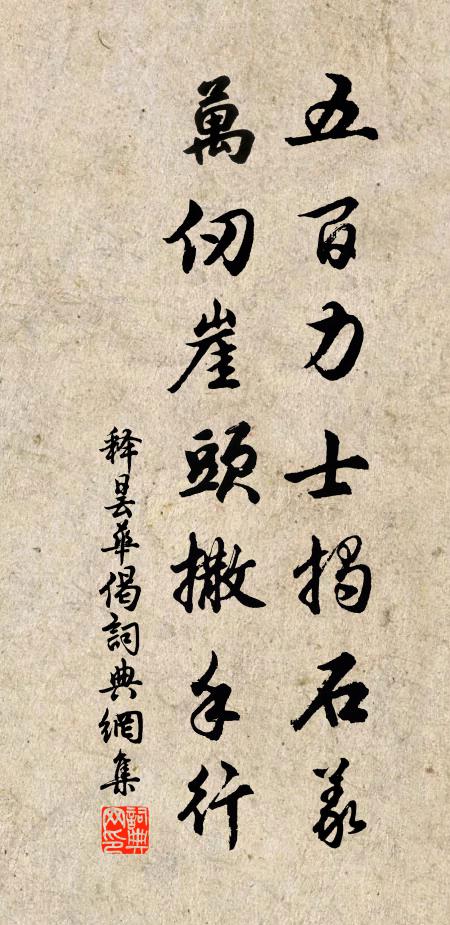 五百力士揭石義
萬仞崖頭撒手行
释曇華偈詞典網集
詞典網印